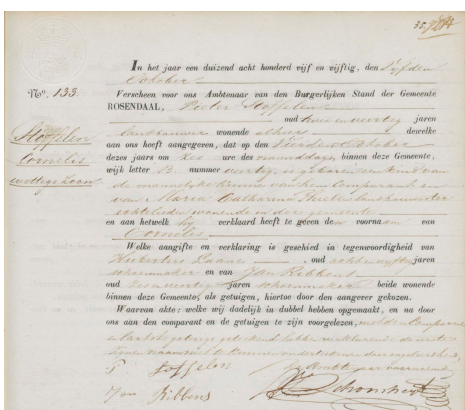 In het jaar een duizend acht honderd vijf en vijftig, den vyfden
October
N°. 133. Verscheen voor ons Ambtenaar van den Burgerlijken Stand der Gemeente
ROSENDAAL, Pieter Stoffelen
oud twee en veertig jaren
landbouwer wonende alhier dewelke
Stoffelen
aan ons heeft aangegeven, dat op den vierden October
Cornelis
dezes jaars om zes ure des namiddags binnen deze Gemeente,
wettige zoon
wijk letter B. nummer veertig, is geboren een kind van
de mannelijke kunne van hem Comparant en
van Maria Catharina landbouwster
echtelieden wonende in deze gemeente
en aan hetwelk hy verklaard heeft te geven den voornaam van
Cornelis
Welke aangifte en verklaring is geschied in tegenwoordigheid van
Hubertus Laane oud acht en vyftig jaren
schoenmaker en van Jan Ribbens
oud zes en veertig jaren schoenmaker beide wonende
binnen deze Gemeente, als getuigen, hiertoe door den aangever gekozen.
Waarvan akte: welke wij dadelijk in dubbel hebben opgemaakt, en na door
ons aan den comparant en de getuigen te zijn voorgelezen, met den Comparant
en laatste getuige geteekend hebben verklarende de eerste
P Stoffelen
Jan Ribbens